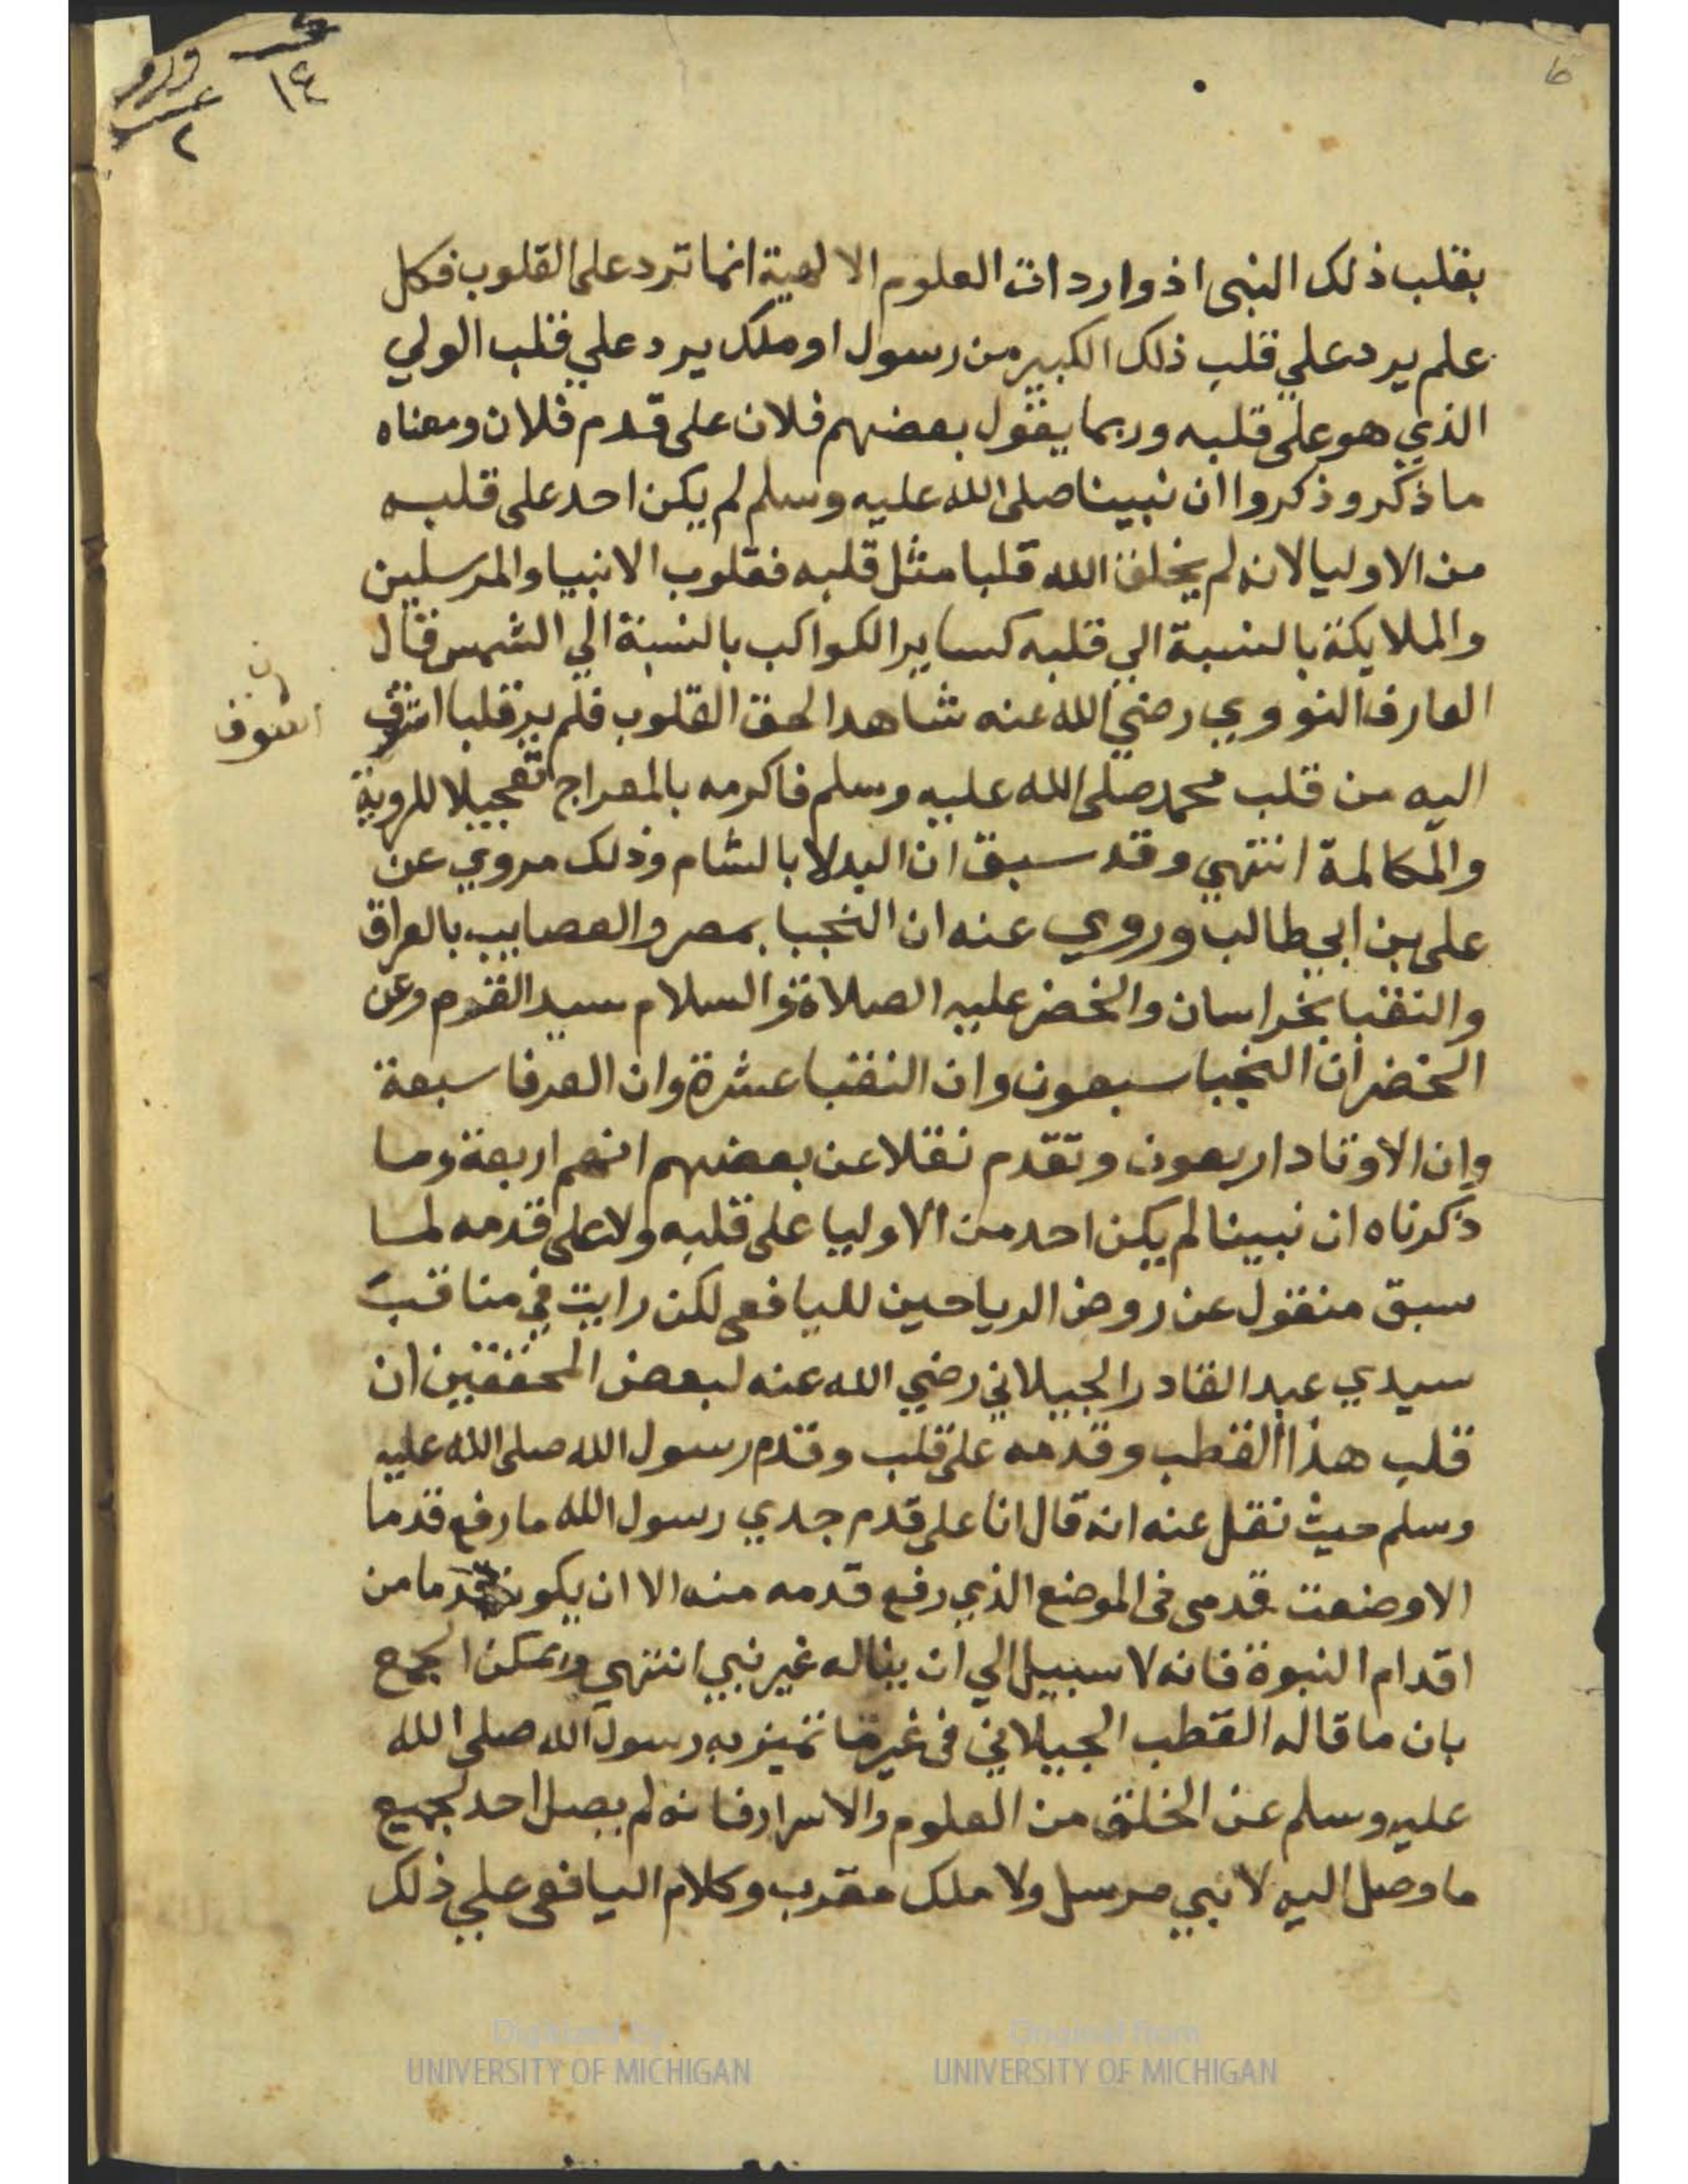 6
١٤
٢
بقلب ذلك النبى اذ واردات العلوم الالهية انما ترد على القلوب فكل
علم يرد علي قلب ذلك الكبير من رسول او ملك يرد علي قلب الولي
الذي هو على قلبه وربما يقول بعضهم فلان على قدم فلان ومعناه
ما ذكر وذكروا ان نبينا صلى الله عليه وسلم لم يكن احد على قلبه
من الاوليا لانه لم يخلق الله قلبا مثل قلبه فقلوب الانبيا والمرسلين
والملايكة بالنسبة الي قلبه كساير الكواكب بالنسبة الي الشمس قال
العارف النووي رضي الله عنه شاهد الحق القلوب فلم ير قلبا اشوق
ن
اشوق
اليه من قلب محمد صلى الله عليه وسلم فاكرمه بالمعراج تعجيلا للروية
والمكالمة انتهي وقد سبق ان البدلا بالشام وذلك مروي عن
على بن ابي طالب وروي عنه ان النجبا بمصر والعصايب بالعراق
والنقبا بخراسان والخضر عليه الصلاة والسلام سيد القوم وعن
الخضر ان النجبا سبعون وان النقبا عشرة وان العرفا سبعة
وان الاوتاد اربعون وتقدم نقلا عن بعضهم انهم اربعة وما
ذكرناه ان نبينا لم يكن احد من الاوليا على قلبه ولا على قدمه لما
سبق منقول عن روض الرياحين لليافعى لكن رايت في مناقب
سيدي عبد القادر الجيلاني رضي الله عنه لبعض المحققين ان
قلب هذا القطب وقدمه على قلب وقدم رسول الله صلى الله عليه
وسلم حيث نقل عنه انه قال انا على قدم جدي رسول الله ما رفع قدما
الا وضعت قدمى فى الموضع الذي رفع قدمه منه الا ان يكون قدما من
اقدام النبوة فانه لا سبيل الي ان يناله غير نبي انتهي ويمكن الجمع
بان ما قاله القطب الجيلاني فى غير ما تميز به رسول الله صلى الله
عليه وسلم عن الخلق من العلوم والاسرار فانه لم يصل احد لجميع
ما وصل اليه لا نبي مرسل ولا ملك مقرب وكلام اليافعى علي ذلك
Digitized by
UNIVERSITY OF MICHIGAN
Original from
UNIVERSITY OF MICHIGAN